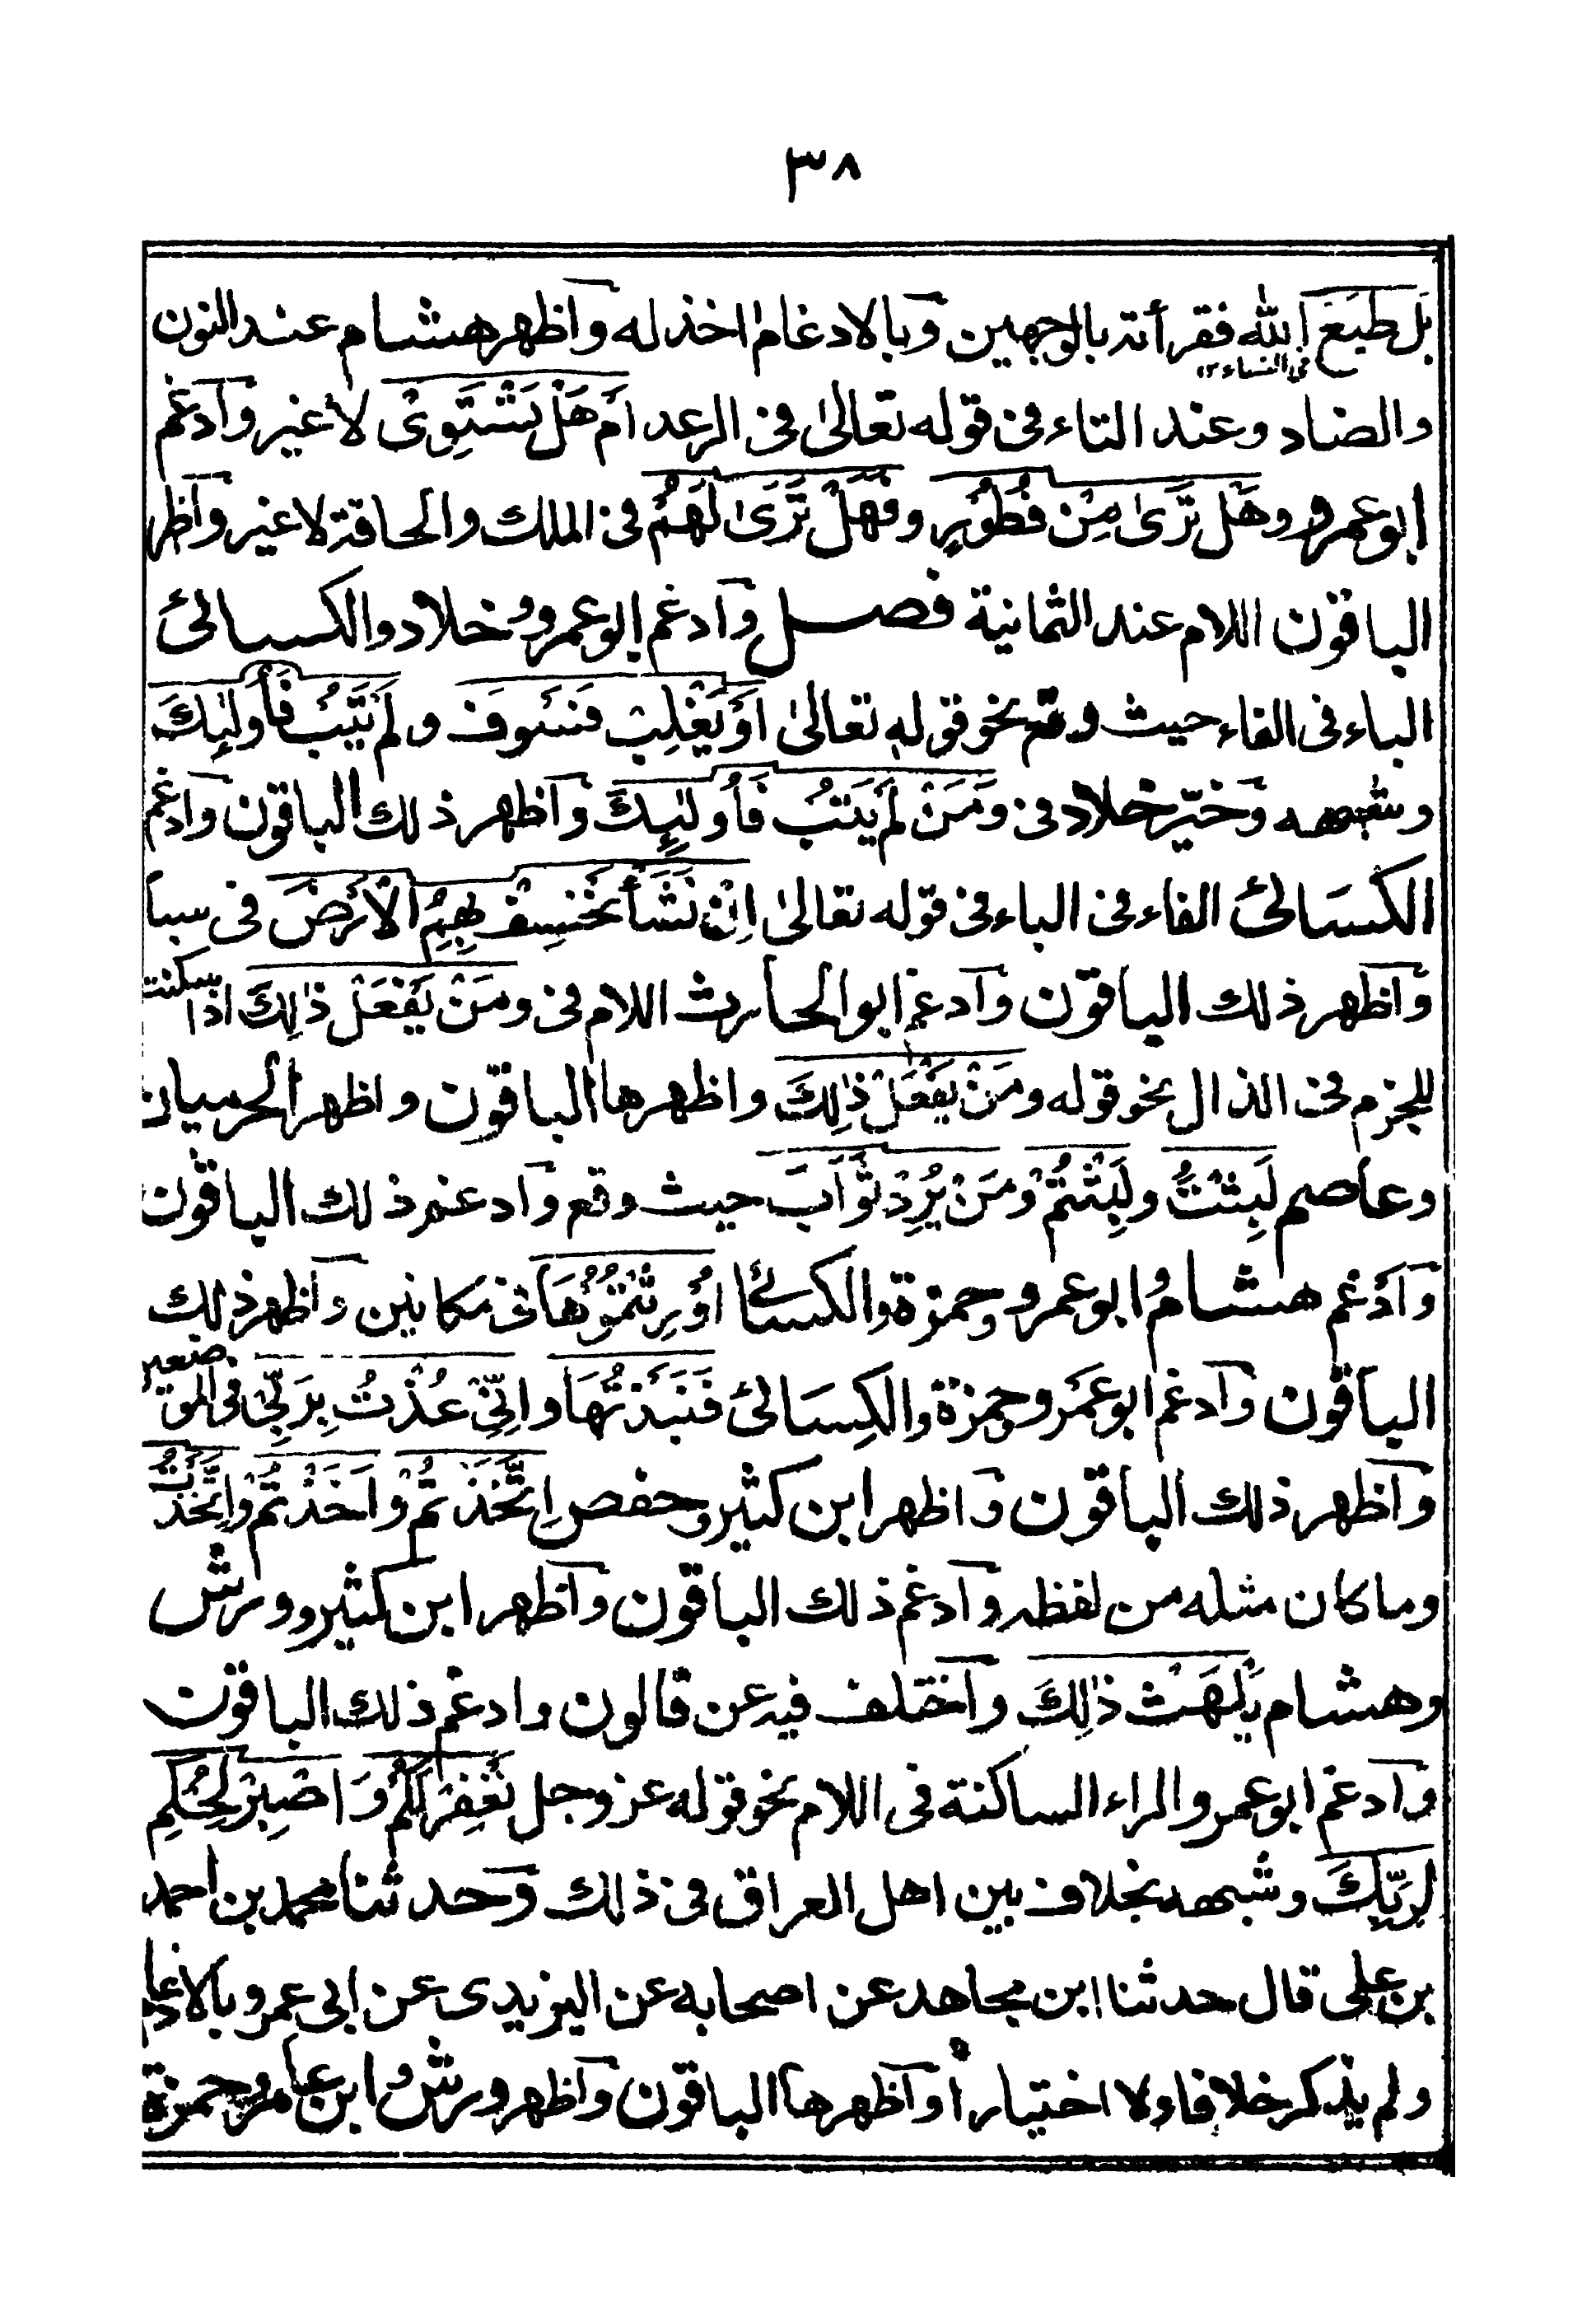 ٣٨
بَل طَبَعَ الله فقرأته بالوجهين وبالادغام اخذ له واظهر هشام عند النون
فى النساء ١٢
والضاد وعند التاء فى قوله تعالىٰ فى الرعد اَم هَلْ تَسْتَوِىْ لا غير وادغم
ابو عمرو وهَل تَرٰى مِنْ فُطُوْرٍ وفَهَلْ تَرٰى لَهُمْ فى الملك والحاقة لا غير واظهر
الباقون اللام عند الثمانية فصل وادغم ابو عمرو وخلاد والكسائى
الباء فى الفاء حيث وقع نحو قوله تعالىٰ اَوْ يَغْلِبْ فَسَوفَ و لَم يَتُبْ فَاُولٰئِكَ
وشبهه وخيّر خلاد فى ومَنْ لَم يَتُبْ فَاُولٰئِكَ واظهر ذلك الباقون وادغم
الكسَائى الفاء فى الباء فى قوله تعالىٰ اِنْ نَشَأْ نَخْسِفْ بِهِمُ الْاَرْضَ فى سبا
واظهر ذلك الباقون وادغم ابو الحارث اللام فى ومَنْ يَفْعَلْ ذٰلِكَ اذا سكنت
للجزم فى الذال نحو قوله ومَنْ يَفْعَلْ ذٰلِكَ واظهرها الباقون واظهر الحرميان
وعاصم لَبِثْتُ ولَبِثْتُمْ ومَنْ يُرِدْ ثَوَابَ حيث وقع وادغم ذلك الباقون
وادغم هشام وابو عمرو وحمزة والكسائى اُوْرِثْتُمُوْهَا فى مكانين واظهر ذلك
الباقون وادغم ابو عَمرو وحمزة والكِسَائى فَنَبَذْتُهَا واِنِّىْ عُذْتُ بِرَبِّىْ فى الموضعين
واظهر ذلك الباقون واظهر ابن كثير وحفص اِتَّخَذْتُمْ واَخَذْتُمْ واتَّخَذْتُ
وما كان مثله من لفظه وادغم ذلك الباقون واظهر ابن كثير وورش
وهشام يَلْهَثْ ذٰلِكَ واختلف فيه عن قالون وادغم ذلك الباقون
وادغم ابو عمرو الراء الساكنة فى اللام نحو قوله عز وجل نَغْفِرْ لَكُمْ وَاصْبِرْ لِحُكْمِ
لِرَبِّكَ وشبهه بخلاف بين اهل العراق فى ذلك وحدثنا محمد بن احمد
بن على قال حدثنا ابن مجاهد عن اصحابه عن اليزيدى عن ابى عمرو بالادغام
ولم يذكر خلافا ولا اختيارا واظهرها الباقون واظهر ورش وابن عامر وحمزة